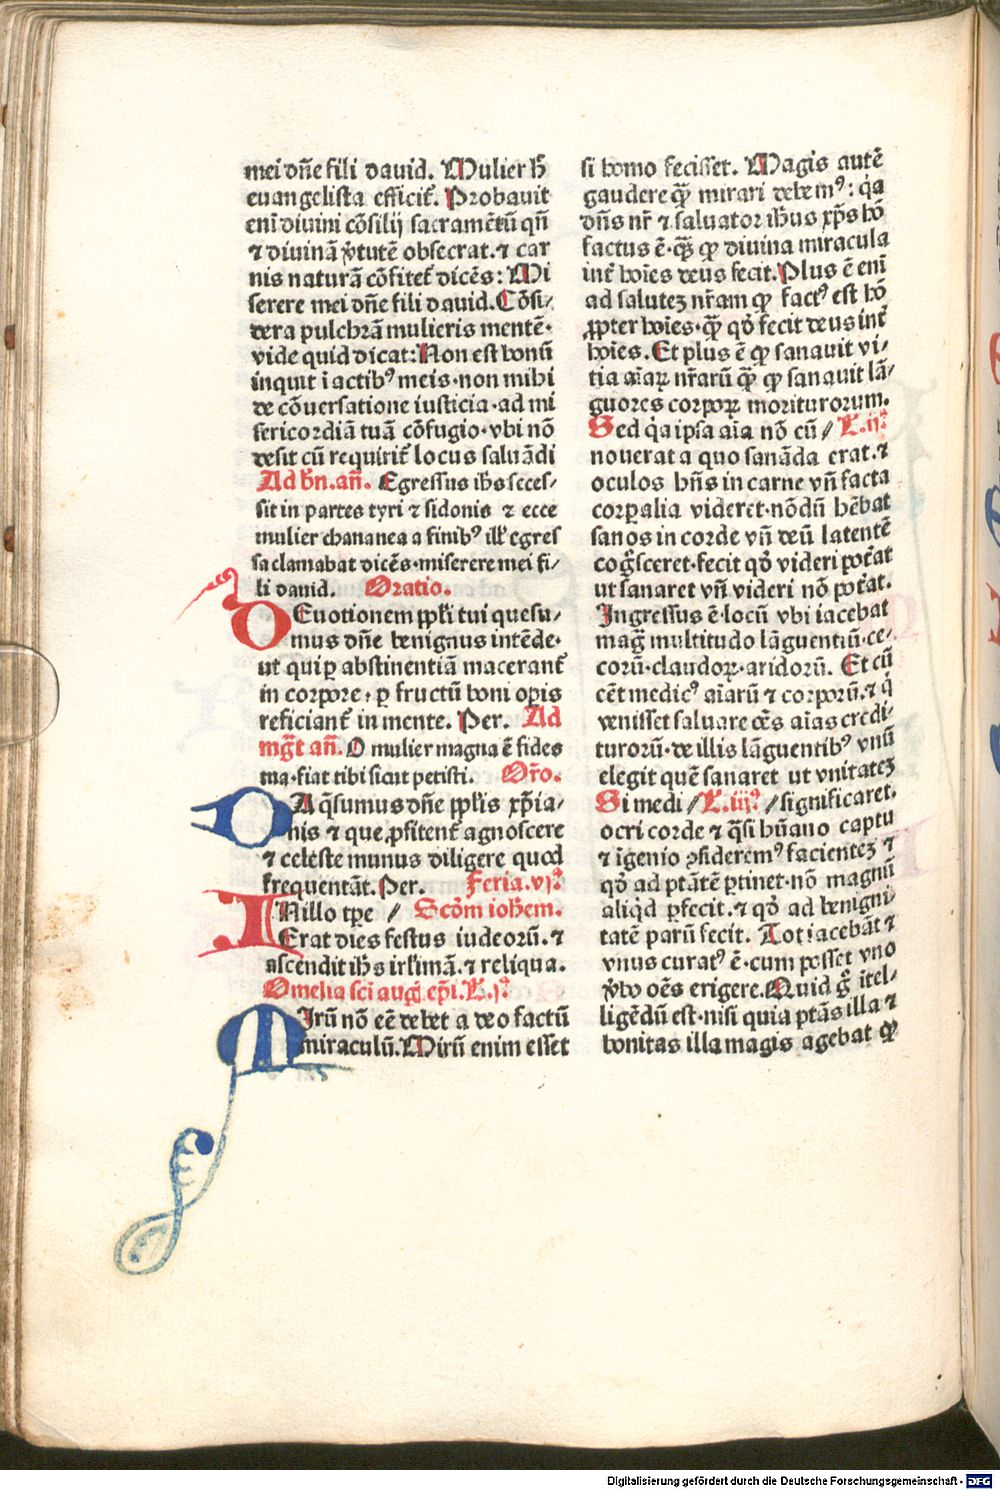 mei dn̄e fili dauid. Mulier h̄
euangelista efficit᷑. Probauit
eni᷑ diuini cōsilij sacramētū qn̄
⁊ diuinā v̓tutē obsecrat. ⁊ car
nis naturā cōfitet᷑ dicēs: Mi
serere mei dn̄e fili dauid. Cōsi⸗
dera pulchrā mulieris mentē.
vide quid dicat: Non est bonū
inquit i actibꝰ meis. non mihi
de cōuersatione iusticia. ad mi
sericordiā tuā cōfugio. vbi nō
desit cū requirit᷑ locus saluādi
Ad bn̄. an̄. Egressus ih̄s seces⸗
sit in partes tyri ⁊ sidonis ⁊ ecce
mulier chananea a finibꝰ ill᷑ egres
sa clamabat dicēs. miserere mei fi⸗
li dauid. Oratio.
DEuotionem ppl̄i tui quesu⸗
mus dn̄e benignus intēde.
ut qui ꝑ abstinentiā macerant᷑
in corpore. ꝑ fructū boni oꝑis
reficiant᷑ in mente. Per. Ad
mḡt an̄. O mulier magna ē fides
tua. fiat tibi sicut petisti. Or̄o.
DA q̄sumus dn̄e ppl̄is xp̄ia⸗
nis ⁊ que ꝓfitent᷑ agnoscere
⁊ celeste munus diligere quod
frequentāt. Per. Feria. vjꝰ
INillo tp̄e // Scd̄m ioh̄em.
Erat dies festus iudeorū. ⁊
ascendit ih̄s irl̄imā. ⁊ reliqua.
Omelia sc̄i auḡ. ep̄i. L. jꝰ
MIrū nō eē debet a deo factū
miraculū. Mirū enim esset
si homo fecisset. Magis autē
gaudere ꝙ̄ mirari debemꝰ: q̇a
dn̄s nr̄ ⁊ saluator ih̄us xp̄s hō
factus ē. ꝙ̄ ꝙ diuina miracula
int᷑ hoīes deus fecit. Plus ē eni᷑
ad salutē nr̄am ꝙ factꝰ est hō
ꝓpter hoīes. ꝙ̄ qd̓ fecit deus int᷑
hoīes. Et plus ē ꝙ sanauit vi⸗
tia aīaꝝ nr̄arū ꝙ̄ ꝙ sanauit lā⸗
guores corpoꝝ moriturorum.
Sed q̇a ipsa aīa nō cū // L. ijꝰ
nouerat a quo sanāda erat. ⁊
oculos hn̄s in carne vn̄ facta
corꝑalia videret. nōdū hēbat
sanos in corde vn̄ deū latentē
cog̓sceret. fecit qd̓ videri pot᷑at
ut sanaret vn̄ videri nō pot᷑at.
Ingressus ē. locū vbi iacebat
mag̓ multitudo lāguentiū. ce⸗
corū. claudoꝝ. aridorū. Et cū
cēt medicꝰ aīarū ⁊ corporū. ⁊ q̇
venisset saluare oēs aīas credi⸗
turorū. de illis lāguentibꝰ vnū
elegit quē sanaret ut vnitatēꝫ
Si medi // L. iijꝰ // significaret.
ocri corde ⁊ q̄si hūano captu
⁊ īgenio ꝯsideremꝰ facientēꝫ ⁊
qd̓ ad ptātē ꝑtinet. nō magnū
aliqd̓ ꝑfecit. ⁊ qd̓ ad benigni⸗
tatē parū fecit. Tot iacebāt ⁊
vnus curatꝰ ē. cum posset vno
v̓bo oēs erigere. Quid g̓ itel⸗
ligēdū est. nisi quia ptās illa ⁊
bonitas illa magis agebat ꝙ̄
Digitalisierung gefördert durch die Deutsche Forschungsgemeinschaft - DFG